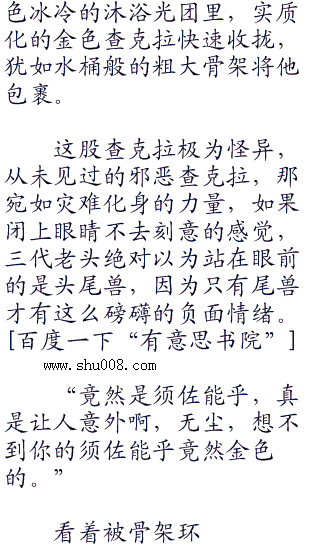 色冰冷的沐浴光团里，实质
化的金色查克拉快速收拢，
犹如水桶般的粗大骨架将他
包裹。
这股查克拉极为怪异，
从未见过的邪恶查克拉，那
宛如灾难化身的力量，如果
闭上眼睛不去刻意的感觉，
三代老头绝对以为站在眼前
的是头尾兽，因为只有尾兽
才有这么磅礴的负面情绪。
[百度一下“有意思书院”]
www.shu008.com
“竟然是须佐能乎，真
是让人意外啊，无尘，想不
到你的须佐能乎竟然金色
的。”
看着被骨架环